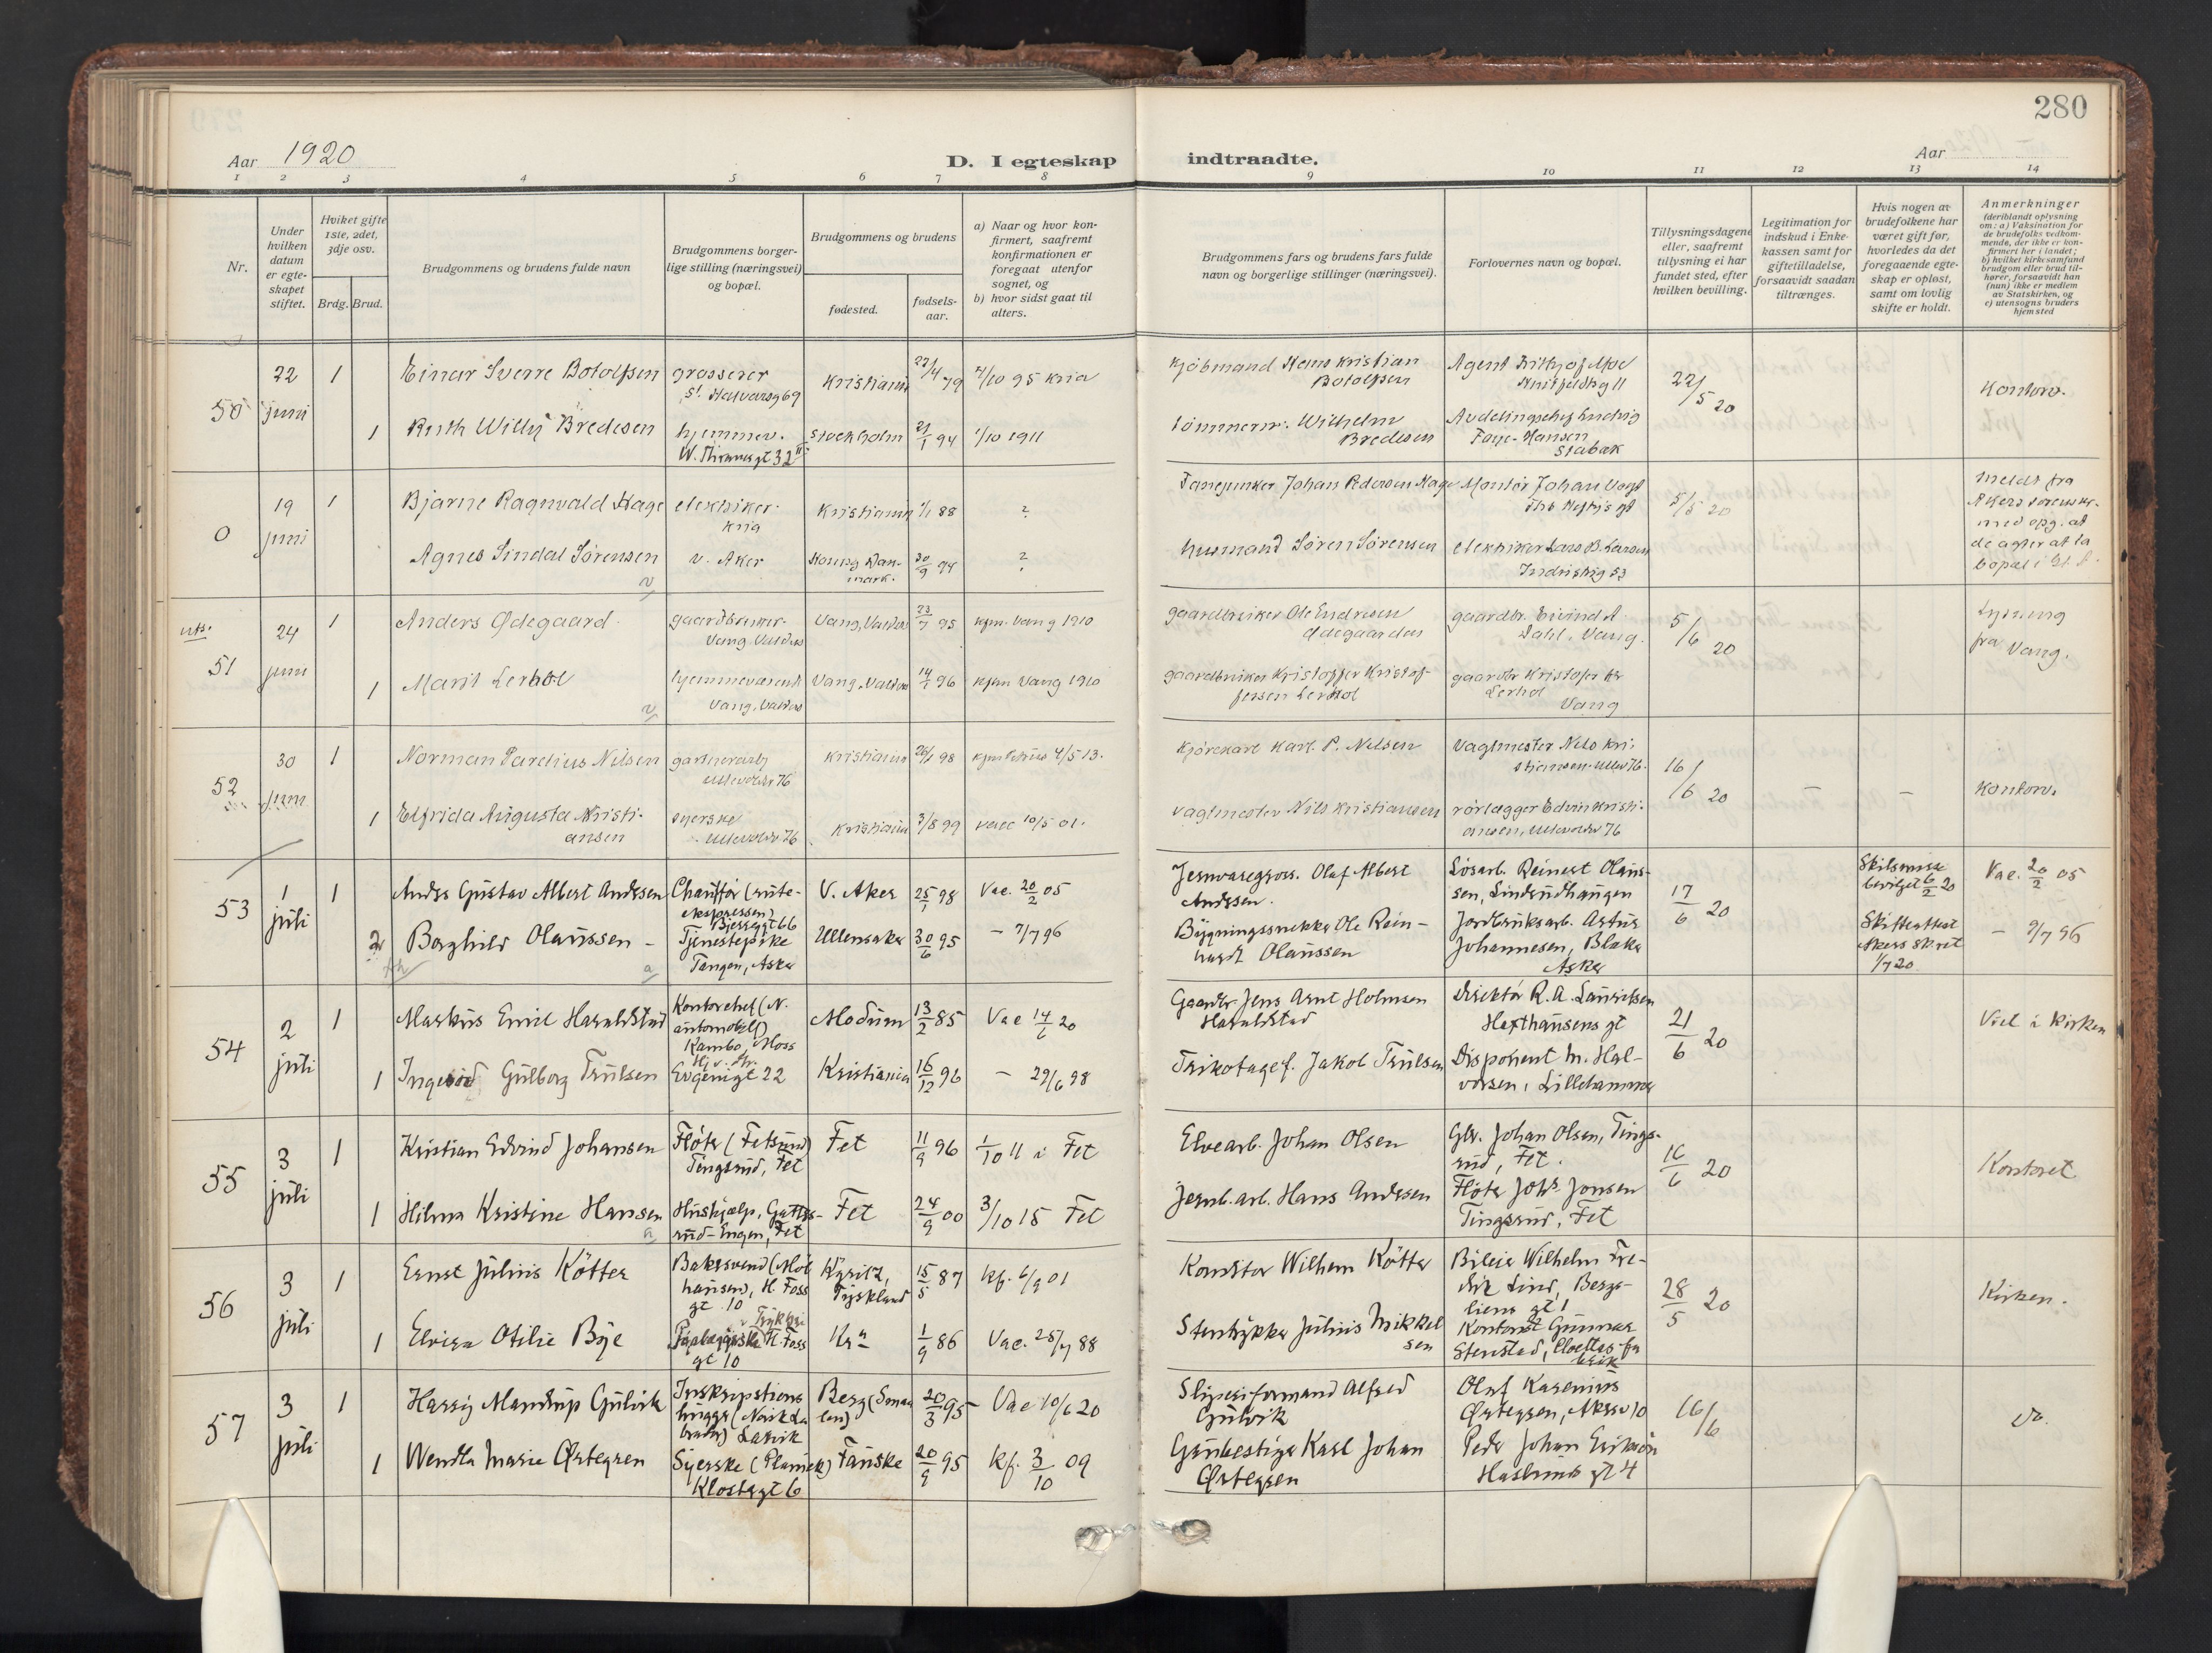 280
Aar 1920
D. I egteskap indtraadte.
Aar
1 2 3 4 5 6 7 8 9 10 11 12 13 14
Nr.
Under hvilken datum er egteskapet stiftet.
Hvilket gifte 1ste, 2det, 3dje osv.
Brdg. Brud.
Brudgommens og brudens fulde navn
Brudgommens borgerlige stilling (næringsvei) og bopæl.
Brudgommens og brudens
fødested.
fødselsaar.
a) Naar og hvor konfirmert, saafremt konfirmationen er foregaat utenfor sognet, og
b) hvor sidst gaat til alters.
Brudgommens fars og brudens fars fulde navn og borgerlige stillinger (næringsvei).
Forlovernes navn og bopæl.
Tillysningsdagene eller, saafremt tillysning ei har fundet sted, efter hvilken bevilling.
Legitimation for indskud i Enkekassen samt for giftetilladelse, forsaavidt saadan tiltrænges.
Hvis nogen av brudefolkene har været gift før, hvorledes da det foregaaende egteskap er opløst, samt om lovlig skifte er holdt.
Anmerkninger
(deriblandt oplysning om: a) Vaksination for de brudefolks vedkommende, der ikke er konfirmert her i landet; b) hvilket kirkesamfund brudgom eller brud tilhører, forsaavidt han (hun) ikke er medlem av Statskirken, og c) utensogns bruders hjemsted
50 22 juni 1 Einar Sverre Botolfsen grosserer St. Halvardsg 69 Kristiania 22/4 79 /10 95 Kria Kjøbmand Hans Kristian Botolfsen Agent Fritjof Moe Huitfeldtsg 11 22/5 20 Kontoro.
1 Ruth Willy Bredesen hjemmev. W. Thranesgt 32 Stockholm 21/1 94 1/10 1911 Tømmerm. Wilhelm Bredesen Avdelingschef Ludvig Faye-Hansen Stabæk
0 19 juni 1 Bjarne Ragnvald Hage elektriker Kria Kristiania /1 88 ? Fanejunker Johan Pedersen Hage Montør Johan Vogt 5/5 20 meldt fra Akers
Agnes Sindal Sørensen v. Aker Danmark. 30/9 94 ? husmand Søren Sørensen elektriker Lars B. Larsen 53
51 24 juni 1 Anders Ødegaard gaardbruker Vang, Valdres Vang, Valdres 23/7 95 kfm. Vang 1910 gaardbruker Ole Endresen Ødegaarden gaardbr. Eivind A. Dahl, Vang. 5/6 20 Lysning fra Vang.
1 Marit Lerhol hjemmeværende Vang, Valdres Vang, Valdres 14/1 96 kfm Vang 1910 gaardbruker Kristoffer Kristoffersen Lerhol gaardbr Kristofer Lerhol Vang
52 30 juni 1 Norman Parelius Nilsen gartnerarb Ullevolsv 76 Kristiania 26/ 98 4/5 13. Kjørekarl Karl P. Nilsen Vagtmester Nils Kristiansen. Ullev 76. 16/6 20 – – Kontoro.
1 Elfrida Augusta Kristiansen syerske Ullevolsv 76 Kristiania 3/8 99 vacc 10/5 01. vagtmester Nils Kristiansen rørlægger Edvin Kristiansen, Ullevolsv 76
53 1 juli 1 Anders Gustav Albert Andersen Chauffør (ruteekspressen) Bjerregt 66 V. Aker 25/1 98 Vac. 20/2 05 Jernvaregross. Olaf Albert Andersen. Løsarb. Reinert Olaussen, Lindrudhaugen 17/6 20 Skilsmisse bevilget 6/2 20 Vac. 20/2 05
2 Borghild Olaussen – Tjenestepike Tangen, Asker Ullensaker 30/6 95 – 9/7 96 Bygningssnekker Ole Reinhardt Olaussen Jordbruksarb. Artur Johannesen, Blaker Asker Skifteattest Akers skret 1/7 20 – 9/7 96
54 2 juli 1 Markus Emil Haraldstad Kontorchef (N. automobil) Kambo, Moss Modum 13/2 85 Vac 14/6 20 Gaardbr. Jens Arnt Holmsen Haraldstad Direktør R. A. Lauritsen Hafthausens gt 21/6 20 Viel i kirken
1 Ingerid Gulborg Trulsen Eugenigt 22 Kristiania 16/12 96 – 29/6 98 Trikotagef. Jakob Trulsen Disponent M. Halvorsen, Lillehammer
55 3 juli 1 Kristian Edvind Johansen Fløter (Fetsund) Tingsrud, Fet Fet 11/9 96 1/10 11 i Fet Elvearb. Johan Olsen Gbr. Johan Olsen, Tingsrud, Fet. 16/6 20 Kontoret
1 Hilma Kristine Hansen Huskjælp, Engen, Fet Fet 24/9 00 3/10 15 Fet Jernb.arb. Hans Andersen Fløter Johs. Jonsen Tingsrud, Fet
56 3 juli 1 Ernst Julius Kötter Bakersvend (Møllhausen), H. Foss gt 10 Kyritz, Tyskland 15/5 87 kf. 6/9 01 Konditor Wilhem Kötter Bileier Wilhelm Fredrik Lind, Bergsliens gt 1 28/5 20 Kirken.
1 Elvira Otilie Bye H. Foss gt 10 Kra 1/9 86 Vac. 25/7 88 Stentrykker Julius Mikkelsen Kontorist Gunnar Stenstad, fabrik
57 3 juli 1 Harry Mandrup Gulvik Berg (Smaalen) 20/3 95 – Vac 10/6 20 Sliperiformand Alfred Gulvik Olaf Karenius Ørtegren, Akersv 10 16/6 do.
1 Wendla Marie Ørtegren Syerske Klostergt 6 Fauske 20/9 95 kf. 3/10 09 Grubestiger Karl Johan Ørtegren Peder Johan Erikson gt 4